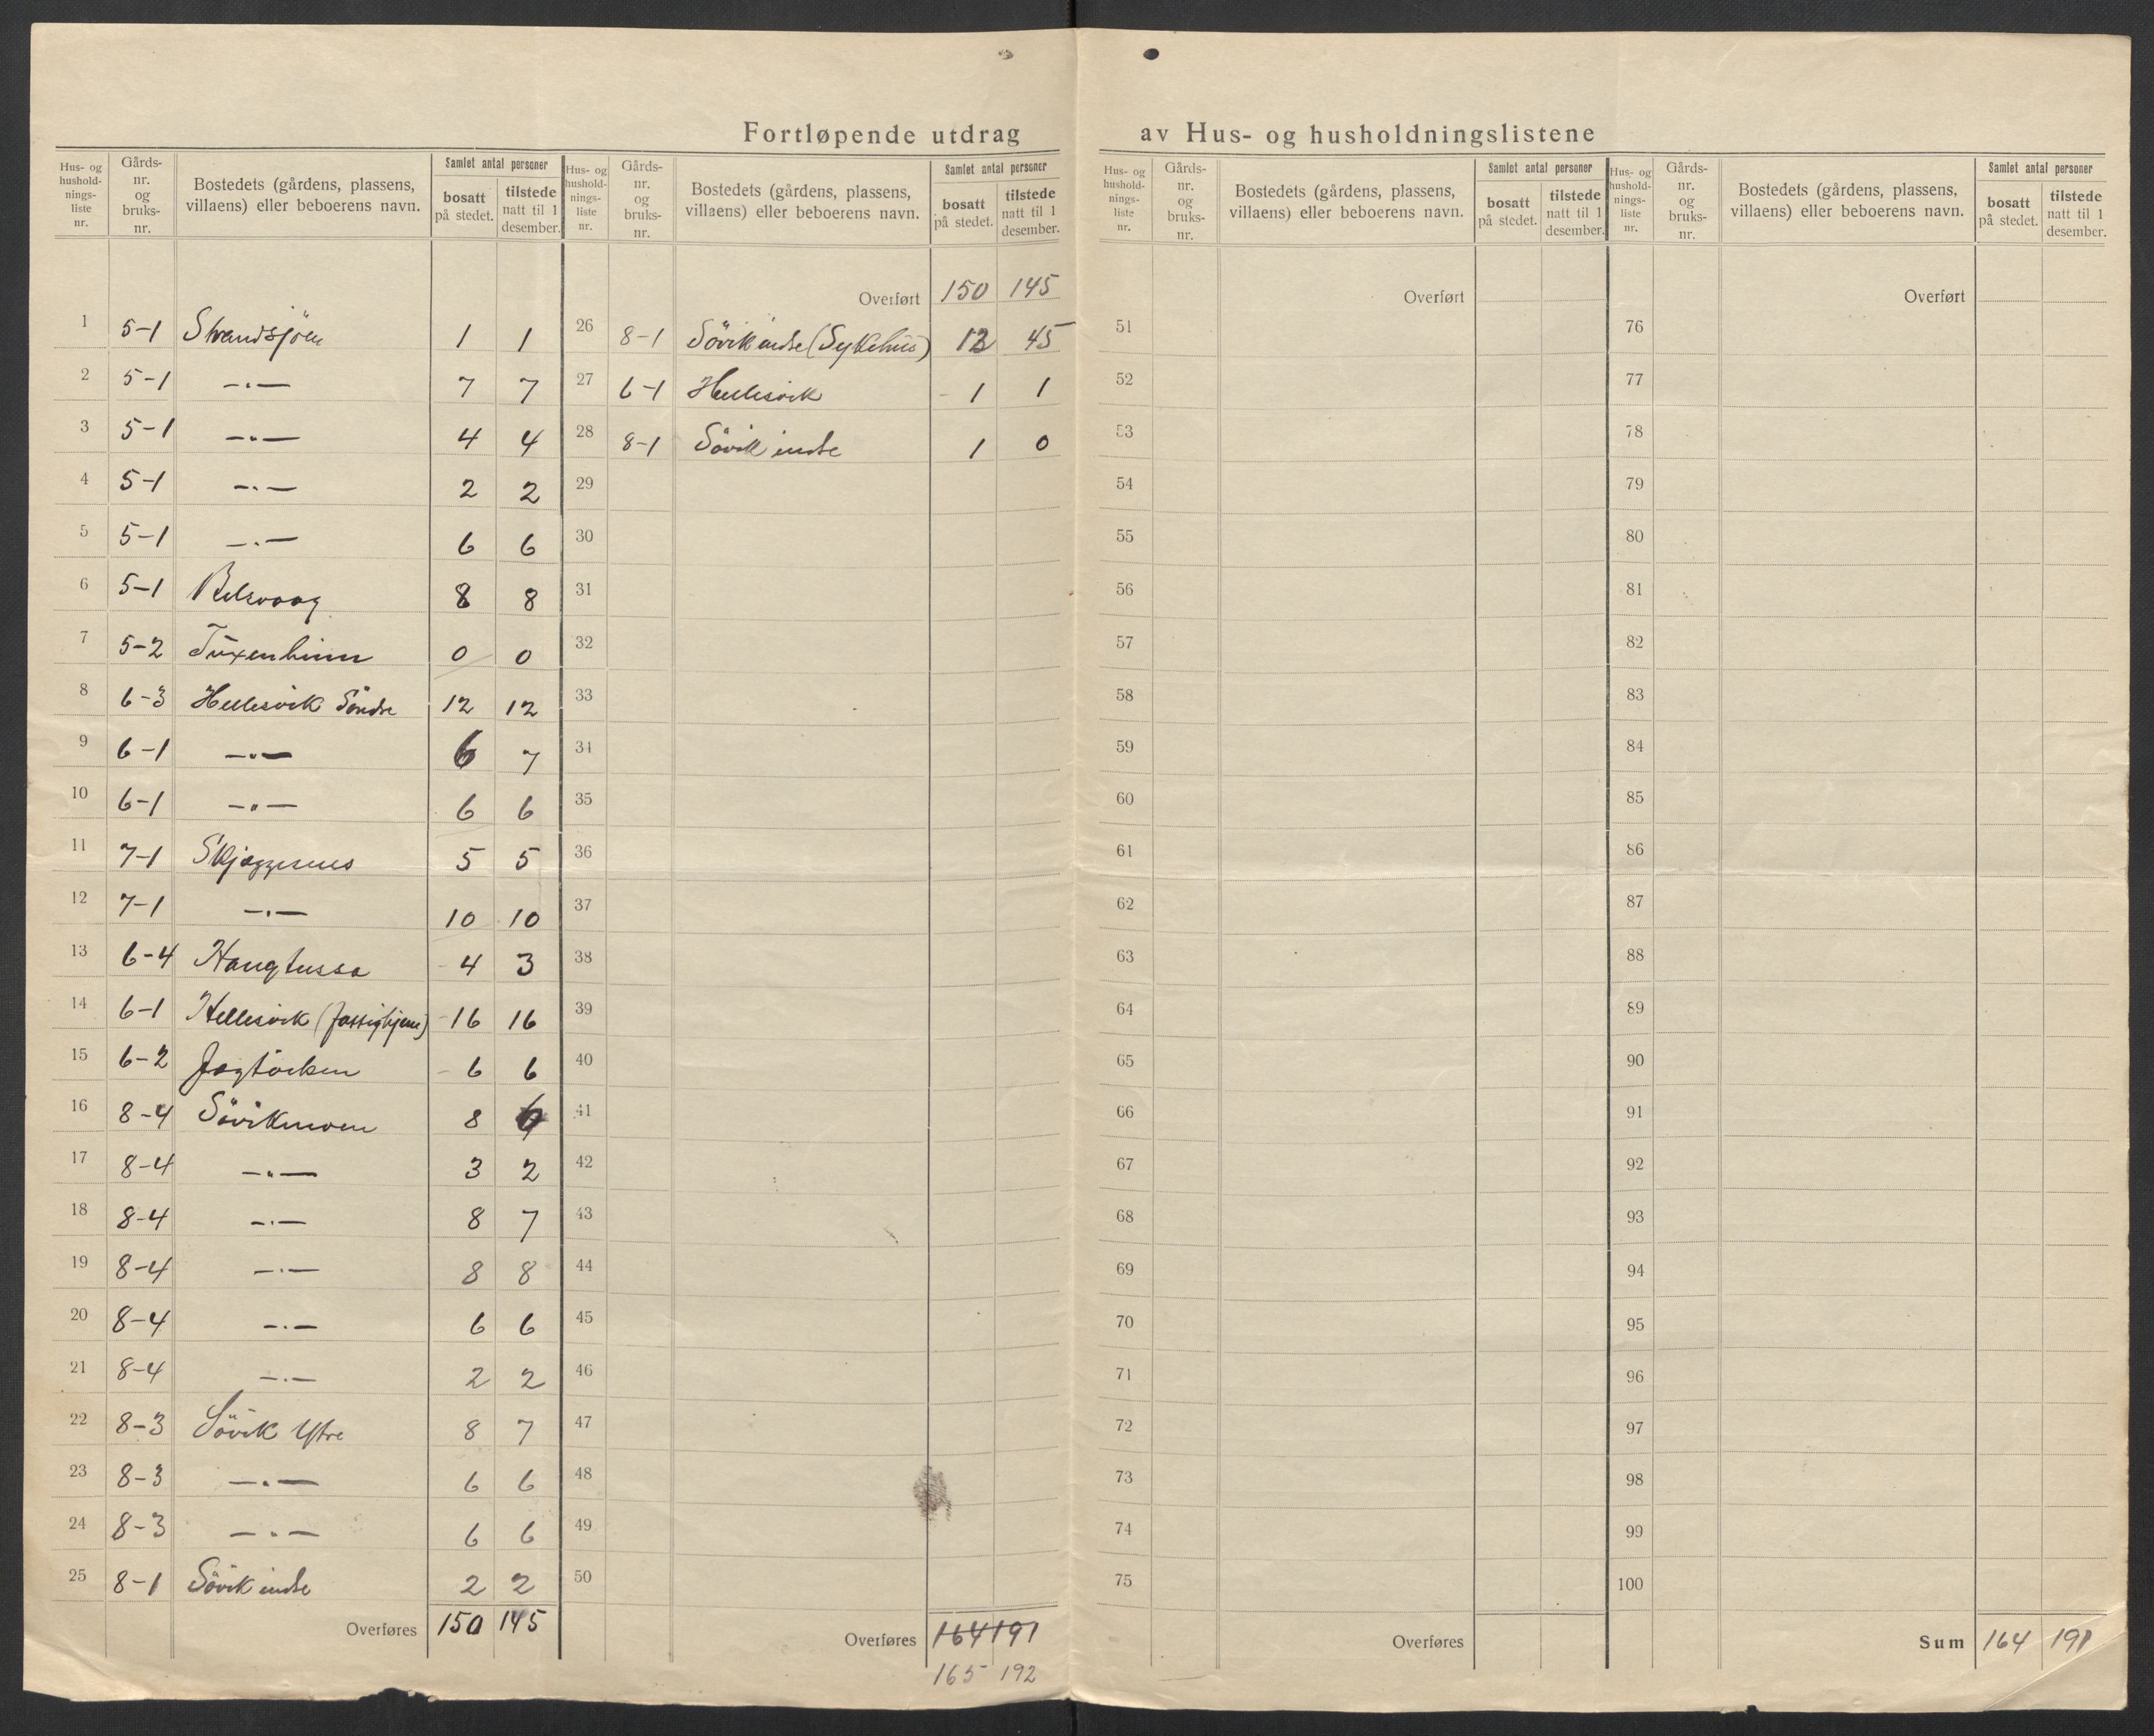 Fortløpende utdrag av Hus- og husholdningslistene
Hus- og hushold-nings-liste nr. | Gårds-nr. og bruks-nr. | Bostedets (gårdens, plassens, villaens) eller beboerens navn. | Samlet antal personer | bosatt på stedet. | tilstede natt til 1 desember.
1 5-1 Strandsjöen 1 1
2 5-1 —„— 7 7
3 5-1 —„— 4 4
4 5-1 —„— 2 2
5 5-1 —„— 6 6
6 5-1 Belsvaag 8 8
7 5-2 Tuxenhinn 0 0
8 6-3 Hellesvik Söndre 12 12
9 6-1 —„— 6 7
10 6-1 —„— 6 6
11 7-1 Skjæggesnes 5 5
12 7-1 —„— 10 10
13 6-4 Haugtussa 4 3
14 6-1 Hellesvik (fattighjem) 16 16
15 6-2 6 6
16 8-4 Sövikmoen 8 6
17 8-4 —„— 3 2
18 8-4 —„— 8 7
19 8-4 —„— 8 8
20 8-4 —„— 6 6
21 8-4 —„— 2 2
22 8-3 Sövik Ytre 8 7
23 8-3 —„— 6 6
24 8-3 —„— 6 6
25 8-1 Sövik indre 2 2
Overføres 150 145
Hus- og hushold-nings-liste nr. | Gårds-nr. og bruks-nr. | Bostedets (gårdens, plassens, villaens) eller beboerens navn. | Samlet antal personer | bosatt på stedet. | tilstede natt til 1 desember.
Overført 150 145
26 8-1 Sövik indre (Sykehus) 12 45
27 6-1 Hellesvik 1 1
28 8-1 Sövik indre 1 0
29
30
31
32
33
34
35
36
37
38
39
40
41
42
43
44
45
46
47
48
49
50
Overføres 164 191
165 192
Hus- og hushold-nings-liste nr. | Gårds-nr. og bruks-nr. | Bostedets (gårdens, plassens, villaens) eller beboerens navn. | Samlet antal personer | bosatt på stedet. | tilstede natt til 1 desember.
Overført
51
52
53
54
55
56
57
58
59
60
61
62
63
64
65
66
67
68
69
70
71
72
73
74
75
Overføres
Hus- og hushold-nings-liste nr. | Gårds-nr. og bruks-nr. | Bostedets (gårdens, plassens, villaens) eller beboerens navn. | Samlet antal personer | bosatt på stedet. | tilstede natt til 1 desember.
Overført
76
77
78
79
80
81
82
83
84
85
86
87
88
89
90
91
92
93
94
95
96
97
98
99
100
Sum 164 191